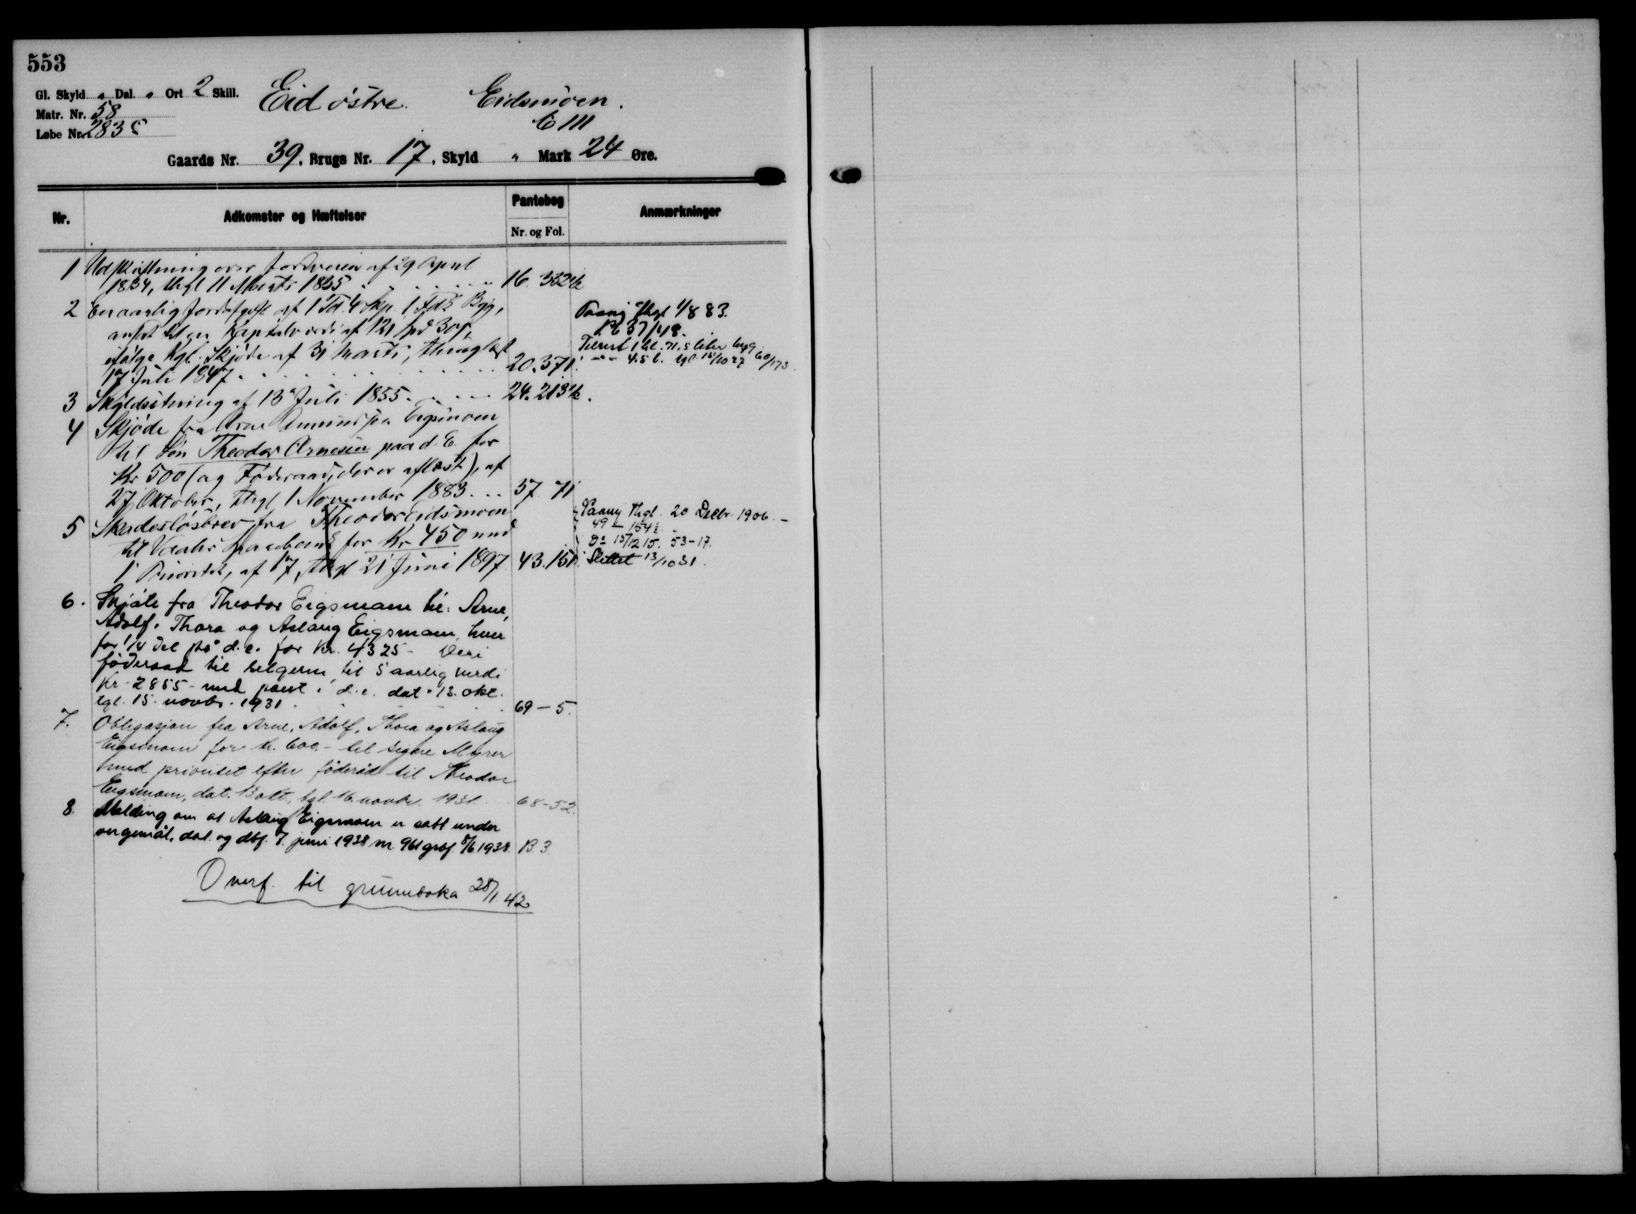 553
Gl. Skyld „ Dal. „ Ort 2 Skill. Eid østre. Eidsmoen.
Matr. Nr. 58
Løbe Nr. 283c E III
Gaards Nr. 39, Brugs Nr. 17, Skyld „ Mark 24 Øre.
Nr. Adkomster og Hæftelser Pantebog Anmærkninger
Nr. og Fol.
1 Udskiftning over Jordveien af 29 April
1834, thgl 11 Marts 1835 16. 332½
2 En aarlig Jordafgift af 1 Td. 4 Skp. 1 Fjd Byg,
ansat til en Kapitalværdi af 121 Spd 30 ß,
ifølge Kgl. Skjøde af 31 Marts, thinglæst
17 Juli 1847 20. 371.
Paany thgl 1/8 83.
Pb 37/48.
3 Skyldsetning af 13 Juli 1855 24. 213½.
4 Skjøde fra Arne
til Søn Theodor Arnesen paa d. E. for
Kr 500 (og Føderaad, der er aflæst), af
27 Oktober, thgl 1 November 1883 37 71
5 Skadesløsbrev fra Theodor Eidsmoen
til Vaaler Sparebank for Kr. 450 med
1 Prioritet, af 17, thgl 21 Juni 1897 43. 151
Paany Thgl. 20 Decbr. 1906. –
49 – 154½
Do 15/12 15. 53–17.
Slettet 13/10 31.
6. Skjøte fra Theodor Eigsmoen til: Arne,
Adolf, Thora og Aslaug Eigsmoen, hver
for 1/4 del på d. e. for kr. 4325 – Deri
føderaad til selgeren til 5 aarlig verdi
kr. 2855 – med pant i d. e. dat. 13. okt.
tgl. 15. novbr. 1931. 69 – 5.
7. Obligasjon fra Arne, Adolf, Thora og Aslaug
Eigsmoen for kr. 600,– til Signe Myrer
med prioritet efter føderåd til Theodor
Eigsmoen, dat. 13 okt., tgl. 16 novbr. 1931. 68–52.
8. Melding om at Aslaug Eigsmoen er satt under
vergemål, dat. og dbf. 7. juni 1938 nr. 961 8/6 1938. B 3.
Overf. til grunnboka 28/1 42